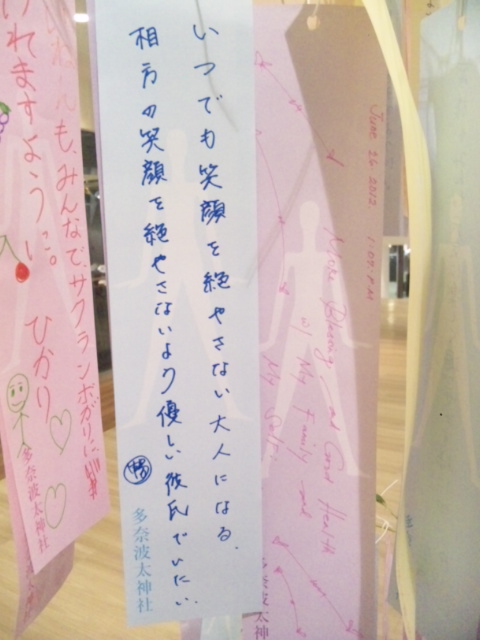 いつでも笑顔を絶やさない大人になる。
相方の笑顔を絶やさないより優しい彼氏でいたい。
多奈波太神社
も、みんなで、サクランボがりに、
れますように。
ひかり
多奈波太神社
June 26 2012
More Blessing and Good Health
w/ My Family and
My Self
太神社